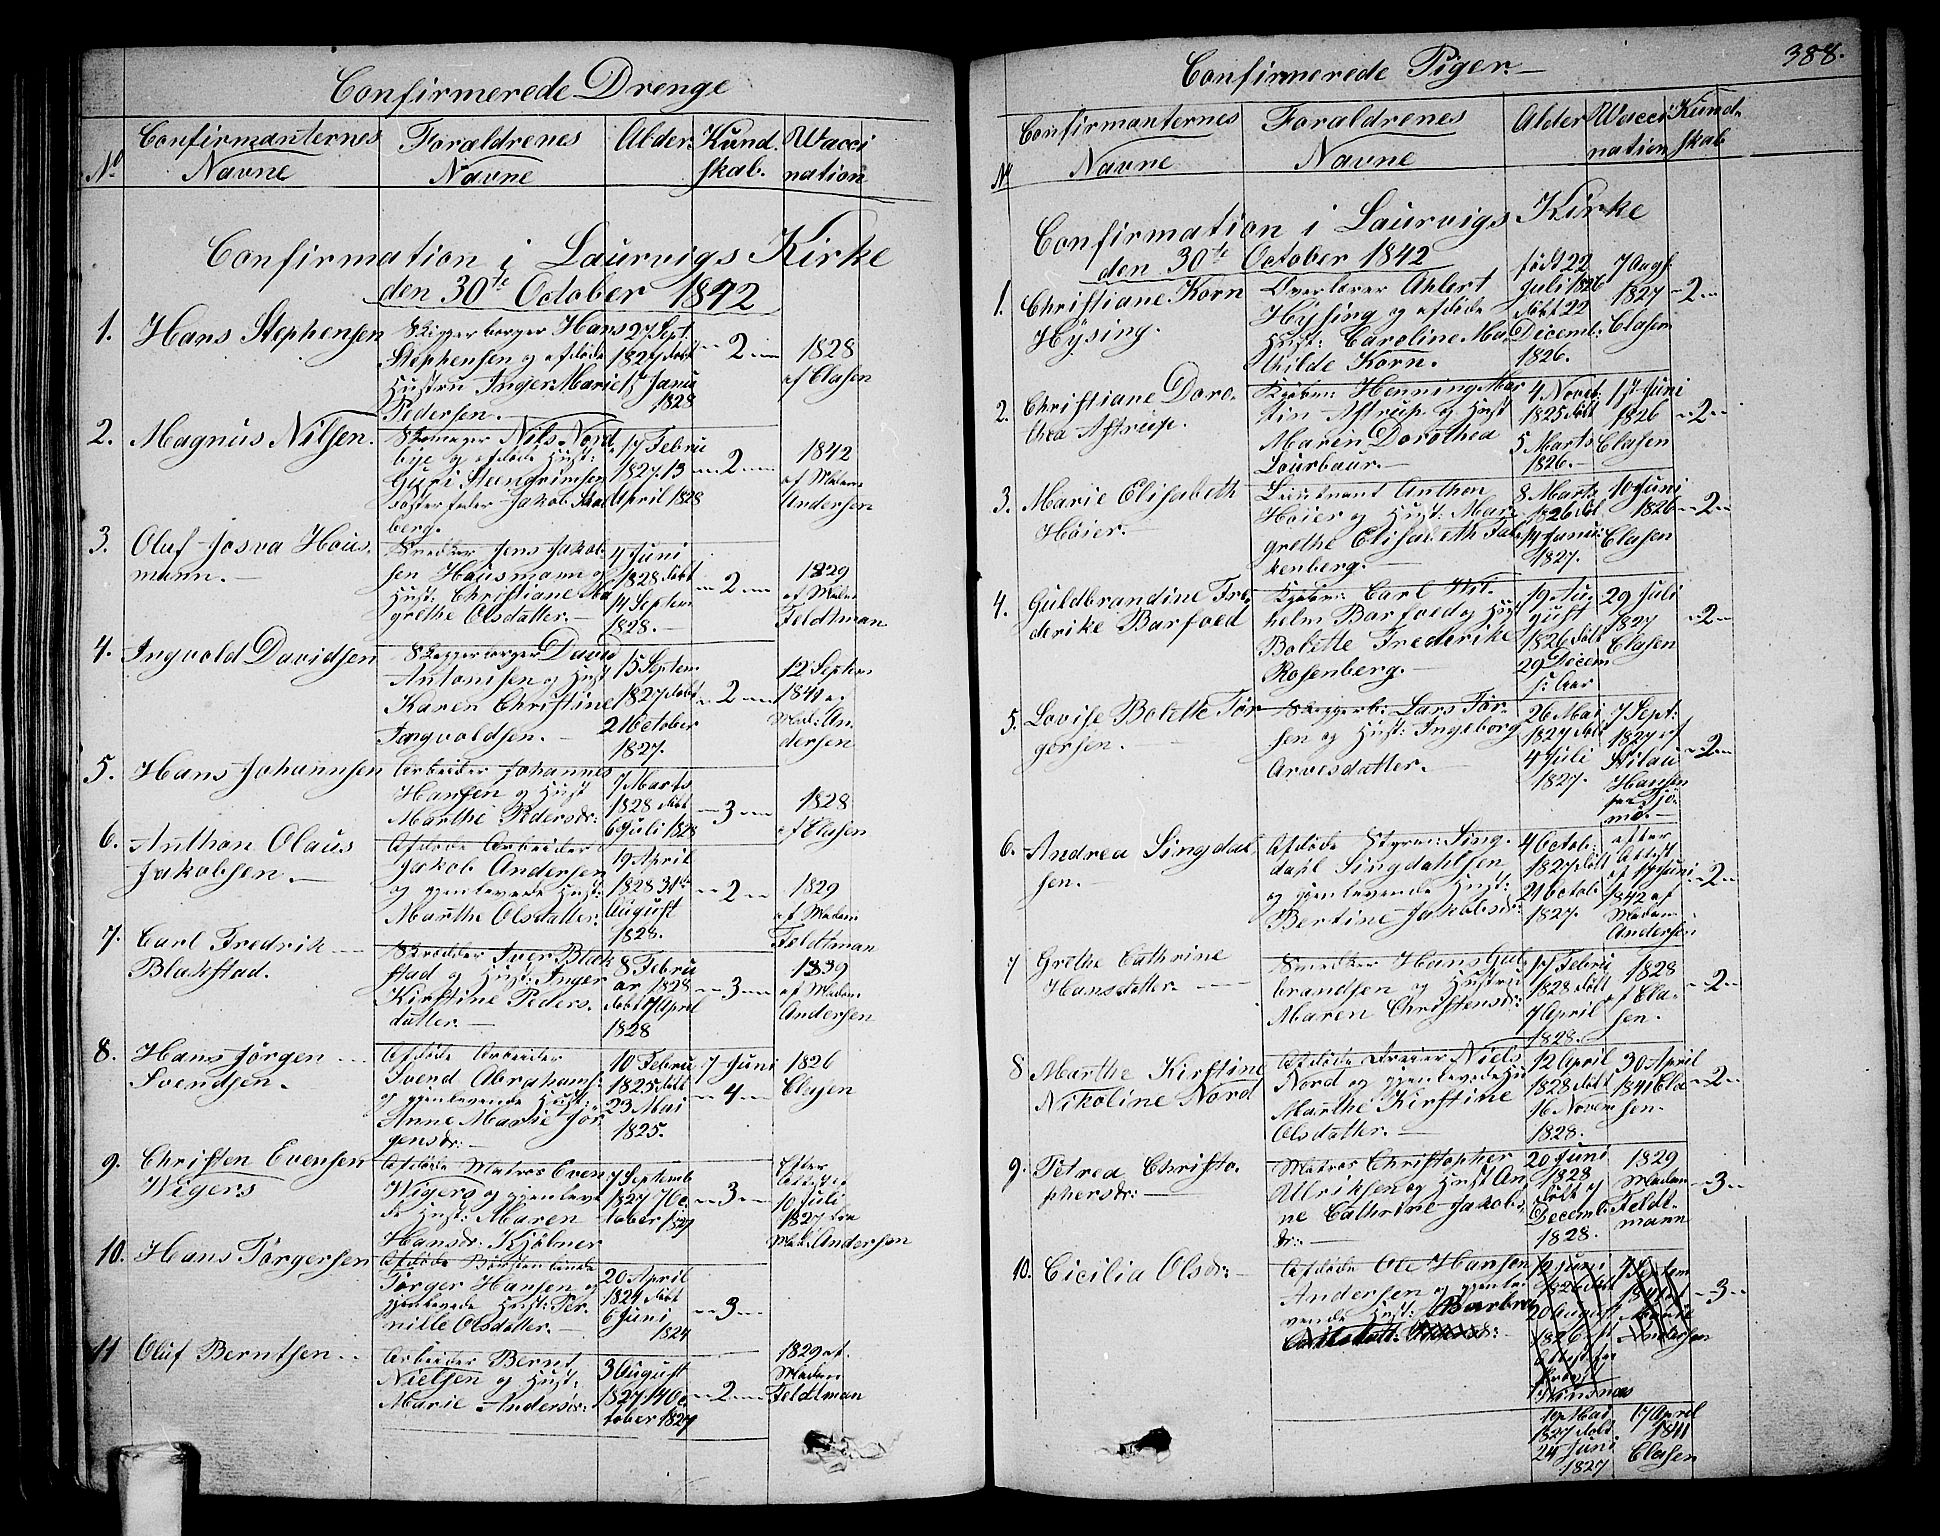 Confirmerede Drenge
No
Confirmanternes Navne
Foraldrenes Navne
Alder
Kundskab.
Waccination
Confirmation i Laurvigs Kirke
den 30te October 1842
1. Hans Stephensen
Skipperborger Hans
Stephensen og afdøde
Hustru Inger Marie
Pedersen.
27 Sept
1827 døbt
1 Janu
1828
2
1828
af Clasen
2. Magnus Nilsen.
Skomager Nils Nord
bye og afdøde Hust:
Guri Steingrimsen
Fosterfader Jakob
berg.
17 Febru
1827 13
April 1828
2
1842
af Madam
Andersen
3. Oluf Josva Hous
mann.
Snedker Jens Jakob
sen Hausmann og
Hust: Christiane Ma
grethe Olsdatter.
4 Juni
1828 døbt
14 Septem
1828.
2
1829
af Madm
Feldtman
4. Ingvold Davidsen
Skipperborger David
Antonisen og Hust
Karen Christine
Ingvoldsen.
15 Septem
1827 døbt
21 October
1827.
2
12 Septem
1841 af
Mad: An
dersen
5. Hans Johannsen
Arbeider Johannes
Hansen og Hust
Marthe Pedersdr:
7 Marts
1828 døbt
6 Juli 1828
3
1828
af Clasen
6. Anthon Olaus
Jakobsen.
Afdøde Arbeider
Jakob Andersen
og gjenlevende Hust:
Marthe Olsdatter.
19 April
1828 31te
August
1828.
2
1829
af Madam
Feldtman
7. Carl Fredrik
Blakstad.
Skrædder Iver Blak
stad og Hust: Inger
Kirstine Peders.
datter.
8 Febru
ar 1828
døbt 7 April
1828
3
1839
af Madam
Andersen
8. Hans Jörgen
Svendsen.
Afdøde Arbeider
Svend Abrahams.
og gjenlevende Hust:
Anne Marie Jör
gensdr:
10 Febru
1825 døbt
23 Mai
1825.
7 Juni
4
1826
Clasen
9. Christen Evensen
Wigers
Afdøde Matros Even
Wigers og gjenleven
de Hust: Maren
Hansdr: Kjöbner
7 Septemb
1827 7 Oc
tober 1827
3
Efter
Attest af
10 Juli
1827 fra
Mad: Andersen
10. Hans Törgersen
Afdøde Börstenbinder
Törger Hansen og
gjenlevende Hust: Per
nille Olsdatter.
20 April
1824 døbt
6 Juni
1824
3
11 Oluf Berntsen
Arbeider Bernt
Nielsen og Hust:
Marie Andersdr:
3 August
1827 14 Oc
tober 1827
2
1829 af.
Madam
Feldtman
388.
Confirmerede Piger.
No
Confirmanternes Navne
Foraldrenes Navne
Alder
Waccination
Kundskab
Confirmation i Laurvigs Kirke
den 30te October 1842
1. Christiane Korn
Hÿsing.
Overlærer Ahlert
Hÿsing og afdøde
Hust: Caroline Ma
thilde Korn.
født 22
Juli 1826
døbt 22
Decemb:
1826.
7 Augs
1827
Clasen
2
2. Christiane Doro
thea Astrup.
Kjøbm: Henning Mar
tin Astrup og Hust
Maren Dorothea
Lourbaur.
4 Novb:
1825 døbt
5 Marts
1826.
17 Juni
1826
Clasen
2
3. Marie Elisabeth
Höier.
Lieutnant Anthon
Höier og Hust: Mar
grethe Elisabeth Fal
kenberg.
8 Marts
1826 døbt
14 Janu:
1827.
10 Juni
1826
Clasen
2
4. Guldbrandine Fre
derike Barfoed
Kjøbm: Carl Wil
helm Barfoed og Hust
Bolette Frederike
Rosenberg.
19 Au
gust
1826 døbt
29 Decem
s: Aar
29 Juli
1827
Clasen
2
5. Lovise Bolette Tör
gersen.
Skipperb: Lars Tör
sen og Hust: Ingeborg
Arvesdatter.
26 Mai
1827 døbt
4 Juli
1827.
7 Sept:
1827 af
Hilau
Hansen
paa Tjö
mö.
2
6. Andrea Lingdal
sen.
Afdøde Styrm: Ling
dahl Lingdahlsen
og gjenlevende Hust:
Bertine Jakobsdr:
4 Octob:
1827 døbt
21 Octob
1827.
efter
Attest
af 17 Juni
1842 af
Madam
Andersen
2
7 Grethe Cathrine
Hansdatter.
Snedker Hans Gul
brandsen og Hustru
Maren Christensdr:
17 Febru
1828 døbt
7 April
1828.
1828
af Cla-
sen.
2
8 Marthe Kirstine
Nikoline Nord
Afdøde Dreier Niels
Nord og gjenlevende Hu
Marthe Kirstine
Olsdatter.
12 April
1828 døbt
16 Novem
1828.
30 April
1841 Cla
sen.
2
9. Petrea Christo
phersdr:
Matros Christopher
Ulriksen og Hust An
ne Cathrine Jakobs
dr:
20 Juni
1828
døbt 7
Decemb:
1828.
1829
Madam
Feldt-
mann
3
10. Cicilia Olsdr:
Afdøde Ole Hanson
Andersen og gjenle
vende Hust: Barbro
12 Juni
1826 døbt
20 August
1826
Attest fra
Provst
7 Septem
1841 af
Andersen
3
19 Mai
1827 døbt
24 Juni
1827
17 April
1841
Clasen